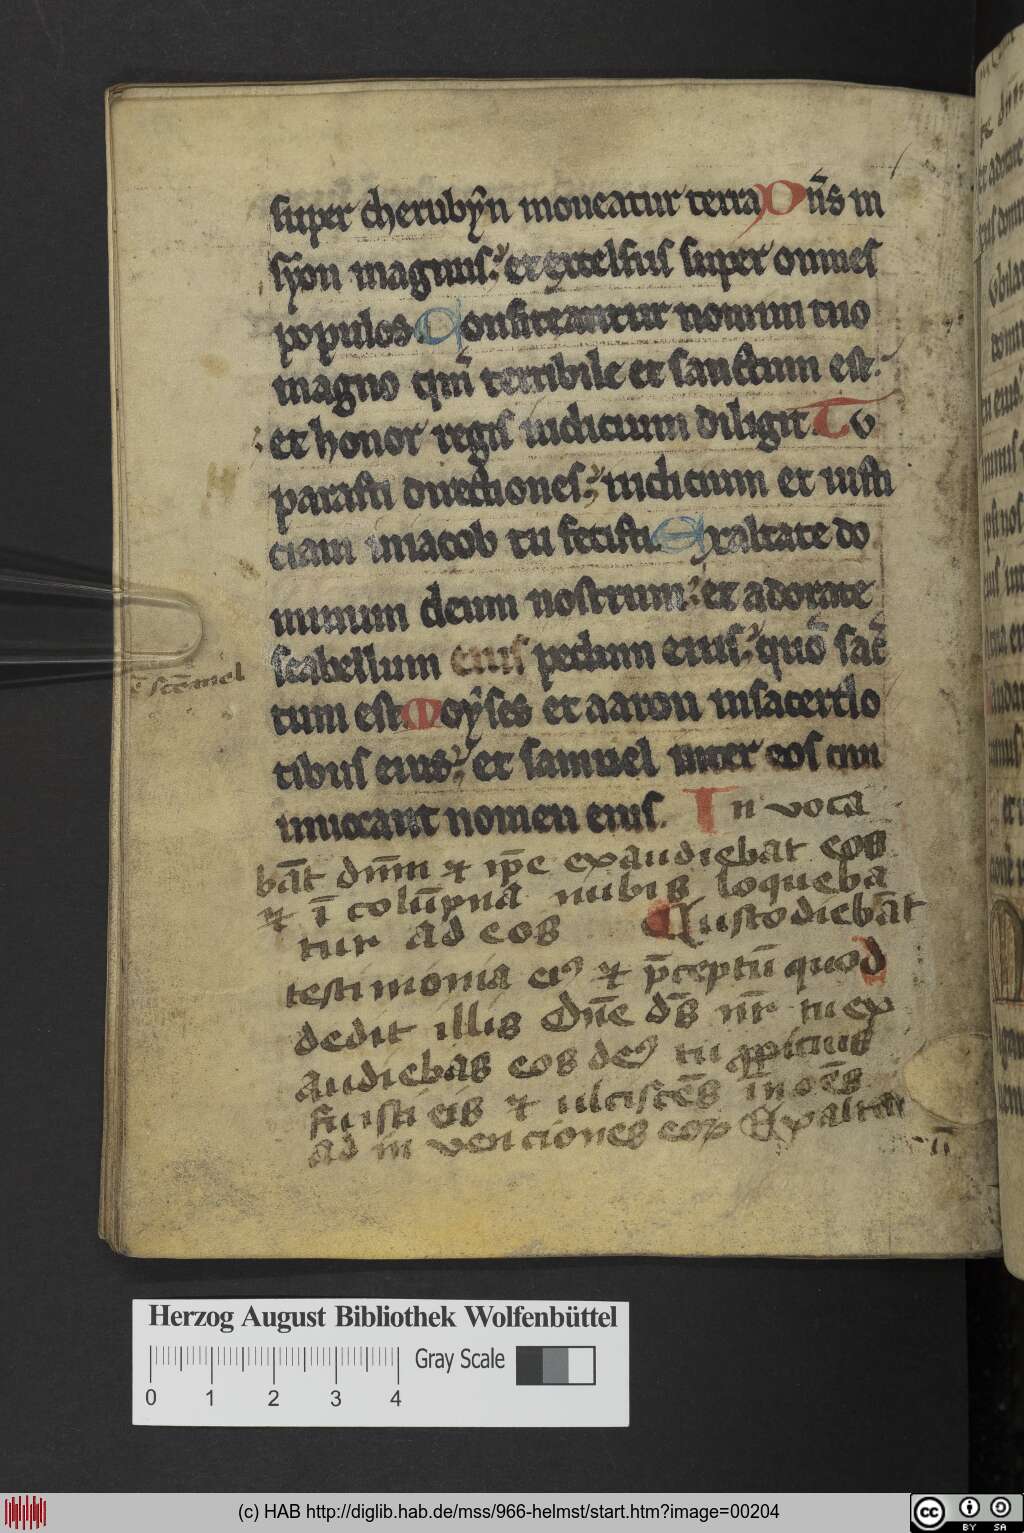 super cherubẏn moueatur terra Dn̄s in
sẏon magnus: et excelsus super omnes
populos Confiteantur nomini tuo
magno qm̄ terribile et sanctum est:
et honor regis iudicium diligit Tv
parasti directiones: iudicium et iusti
ciam iniacob tu fecisti. Exaltate do
minum deum nostrum: et adorate
scabellum eius pedum eius: quō sāc
tum est Moẏses et aaron insacerdo
tibus eius: et samuel inter eos qui
inuocant nomen eius. In voca
bāt dnm̄ ⁊ ip̄e exaudiebat eos
⁊ ī colūpna nubis loqueba
tur ad eos Custodiebāt
testimonia ei⁹ ⁊ p̄ceptū quod
dedit illis Dn̄e ds̄ nr̄ tu ex
audiebas eos de⁹ tu ꝓpicius
fuisti eis ⁊ ulciscēs in oēs
ad in venciones eoꝝ Exalta
Herzog August Bibliothek Wolfenbüttel
Gray Scale
0 1 2 3 4
(c) HAB http://diglib.hab.de/mss/966-helmst/start.htm?image=00204
CC BY SA